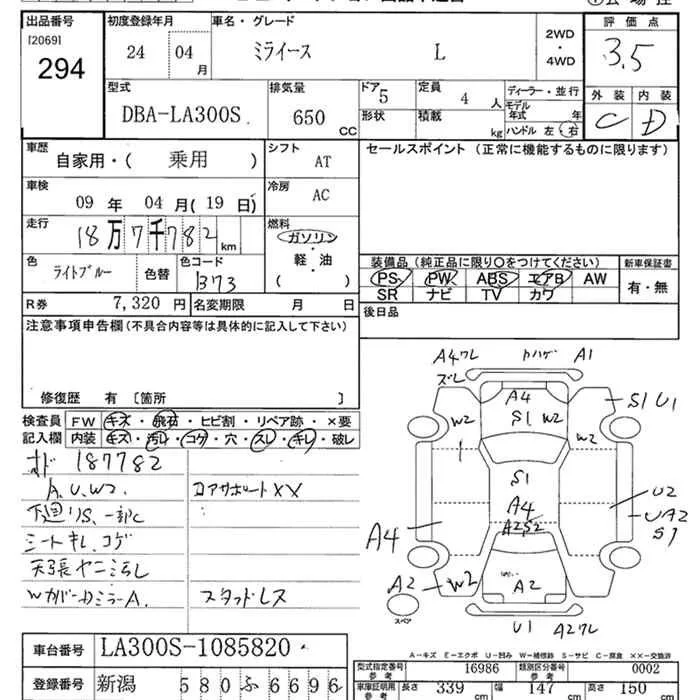 出品番号 [2069] 294
初度登録年月 24 04月
車名・グレード ミライース L
2WD・4WD
評価点 3.5
型式 DBA-LA300S
排気量 650 CC
ドア 5
定員 4 人
形状
積載 kg
ディーラー・並行
モデル年式 年
ハンドル 左 右
外装 C
内装 D
車歴 自家用・(乗用)
シフト AT
セールスポイント(正常に機能するものに限ります)
車検 09年 04月(19日)
冷房 AC
走行 18万7千782 km
燃料 ガソリン・軽・油 ( )
色 ライトブルー
色替
色コード B73
装備品(純正品に限り○をつけてください)
PS PW ABS エアB AW
SR ナビ TV カワ
新車保証書 有・無
R券 7,320円
名変期限 月 日
後日品
注意事項申告欄(不具合内容等は具体的に記入して下さい)
修復歴 有 〔箇所 〕
検査員記入欄
FW キズ・飛石・ヒビ割・リペア跡・×要
内装 キズ・汚レ・コゲ・穴・スレ・キレ・破レ
187782
A.U.W2.
コアサポートXX
下廻りS、一部C
シートキレ、コゲ
天張ヤニ汚レ
WカバーカミラーA.
スタッドレス
A4ワレ
ズレ
カハゲ A1
A4
S1 W2
W2
W2
S1 U1
S1
A4
A2S2
A4
U2
UA2
S1
A2
W2
A2
スペア
U1 A2ワレ
A-キズ E-エクボ U-凹み W-補修跡 S-サビ C-腐食 XX-交換済
車台番号 LA300S-1085820
登録番号 新潟 580ふ6696
型式指定番号 参考 16986
類別区分番号 参考 0002
車庫証明用 参考
長さ 339 cm
幅 147 cm
高さ 150 cm